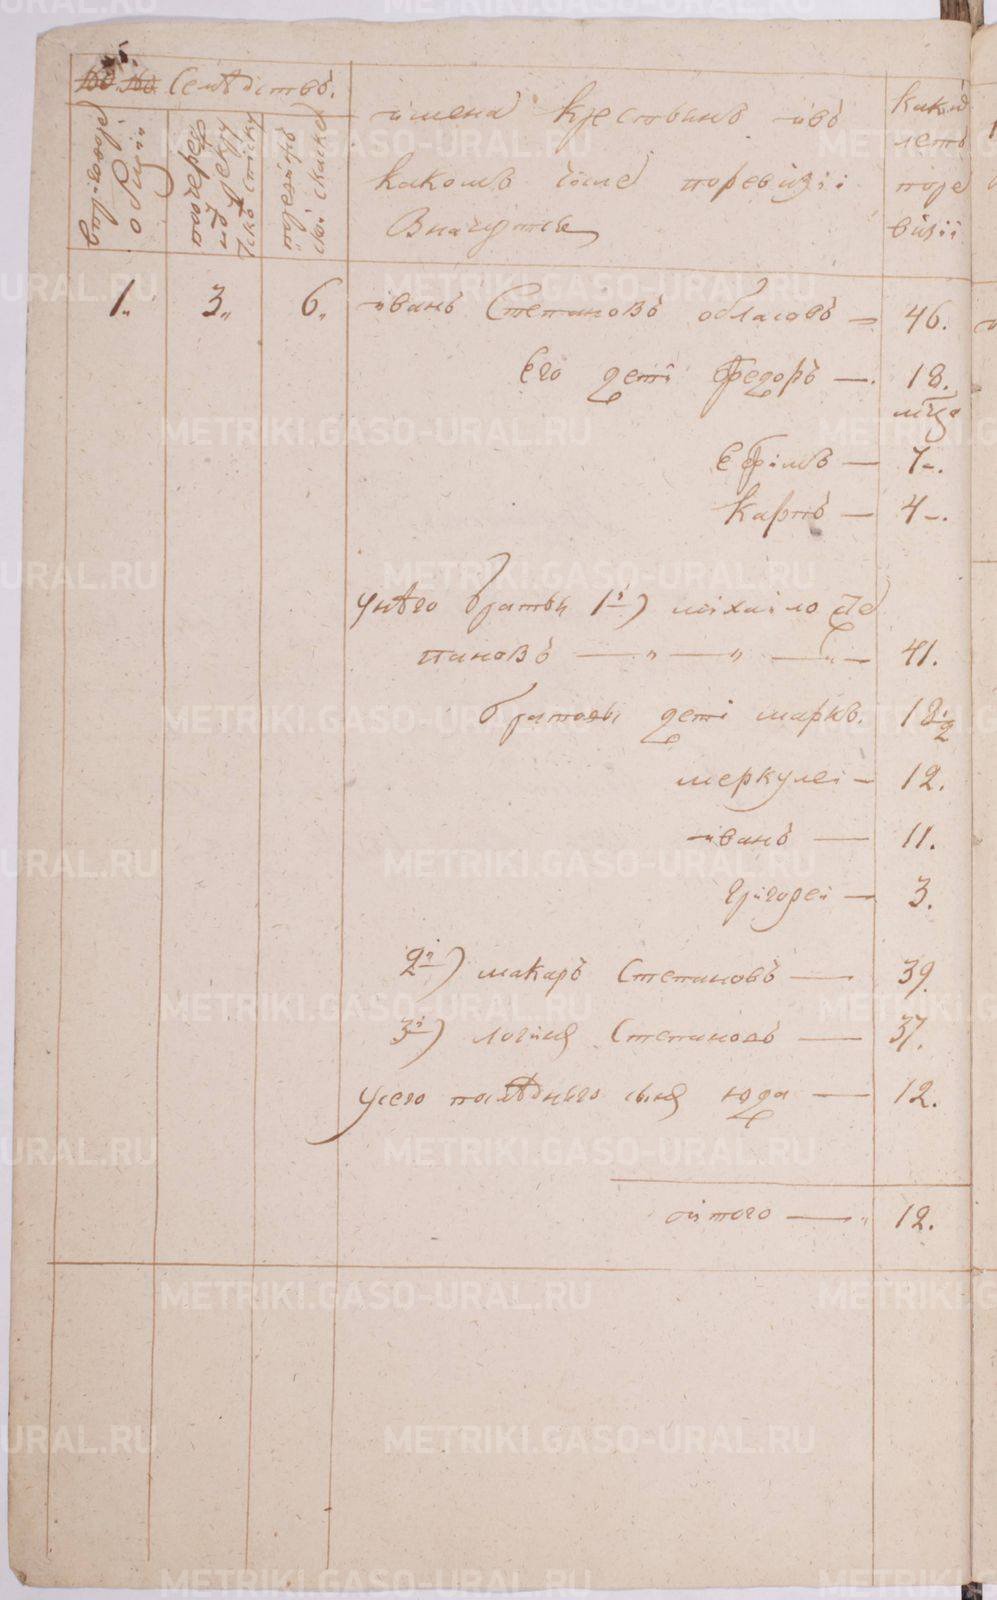 Семѣдствъ.
имена крестьянъ ивъ
какомъ числе поревизіи
Значутся
какихъ
летъ
поре
визіи
1. 3. 6. иванъ Степановъ обласовъ — 46.
Его дети Федоръ — 18.
мца
Ефимъ — 7-.
Карпъ — 4-.
унѣго братьи 1й) михаило Сте
пановъ — " — " — 41.
братовы дети марко. 18
меркулеі — 12.
иванъ — 11.
григореи — 3.
2й) макаръ Степановъ — 39.
3й) логинъ Степановъ — 37.
усего послѣднего сынъ юда — 12.
итого — " 12.
METRIKI.GASO-URAL.RU